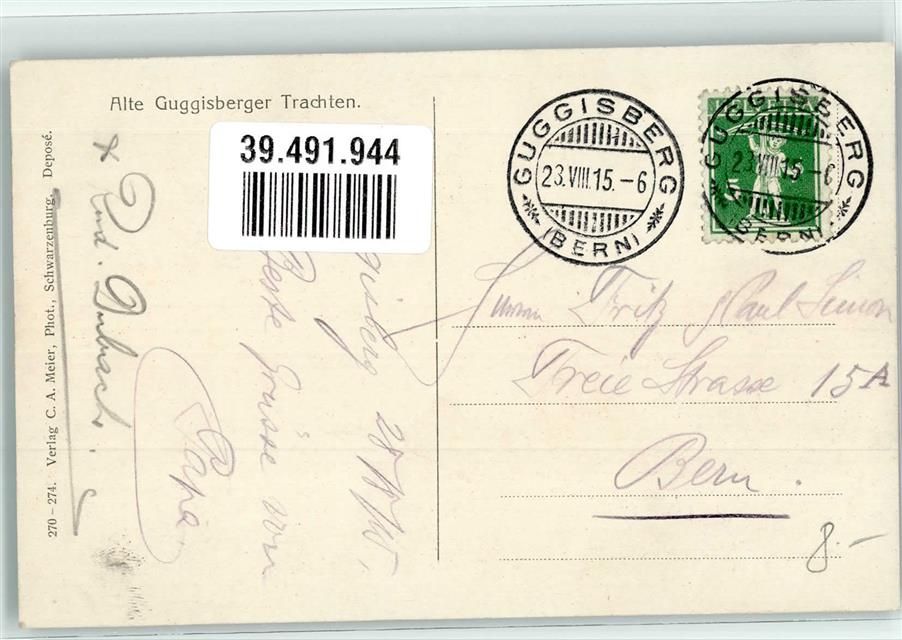 Alte Guggisberger Trachten.
39.491.944
GUGGISBERG
23.VIII.15.-6
(BERN)
GUGGISBERG
23.VIII.15-6
(BERN)
5
Fritz Paul Simon
Freie Strasse 15A
Bern.
8.-
gisberg
Beste Grüsse von
Papa
x Rud. Dubach.
270-274. Verlag C. A. Meier, Phot., Schwarzenburg, Deposé.